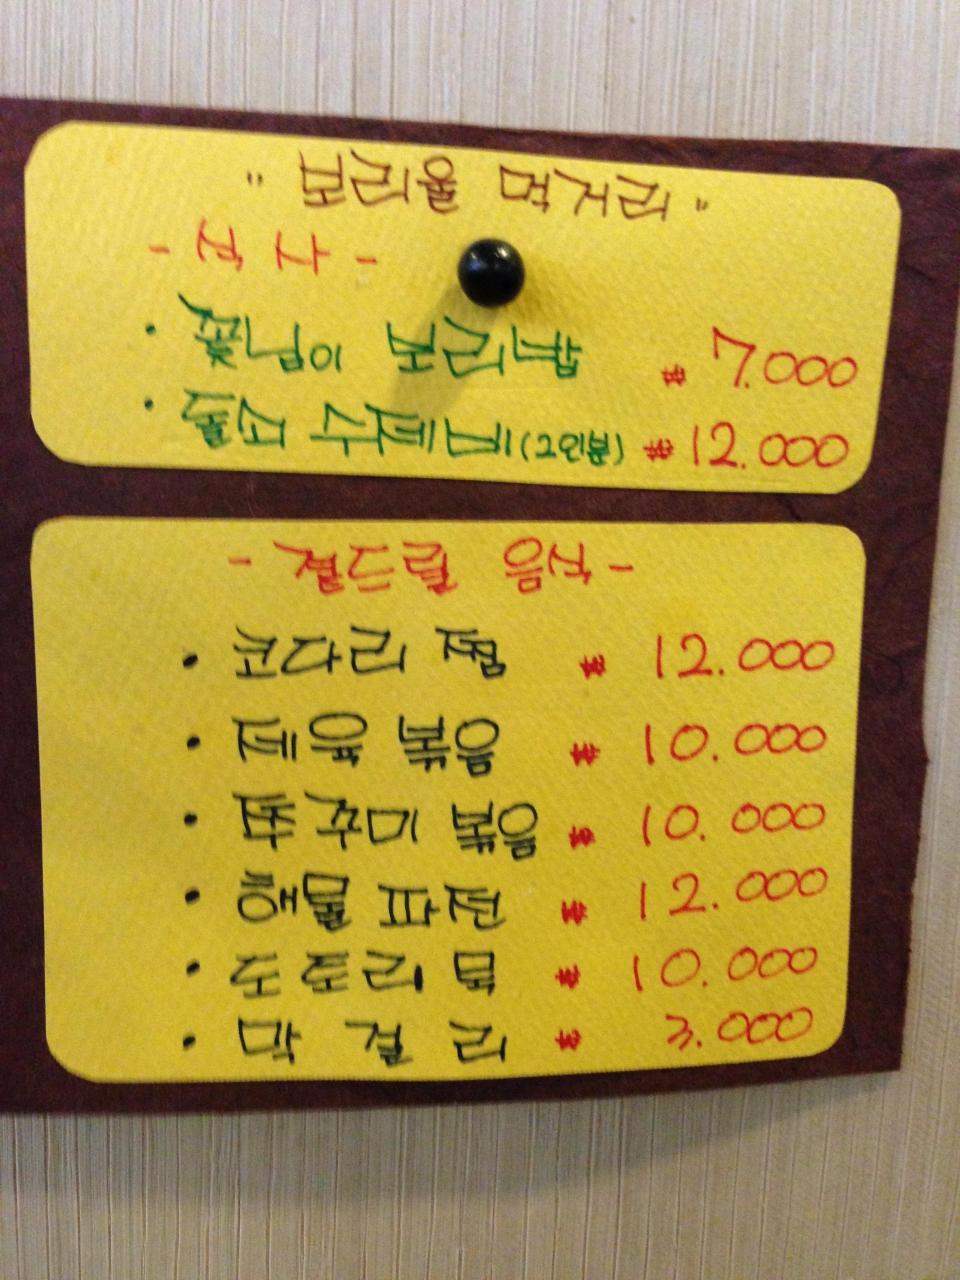 " 보리울 먹거리 "
- 식사 -
· 꽃나물이 보리밥 ₩ 7.000
· 들깨 수제비 (2인분) ₩ 12.000
- 곁드릴 음식 -
· 코다리 찜 ₩ 12.000
· 제육 볶음 ₩ 10.000
· 쭈꾸미 볶음 ₩ 10.000
· 해물 파전 ₩ 12.000
· 도토리 묵 ₩ 10.000
· 막걸리 ₩ 3.000